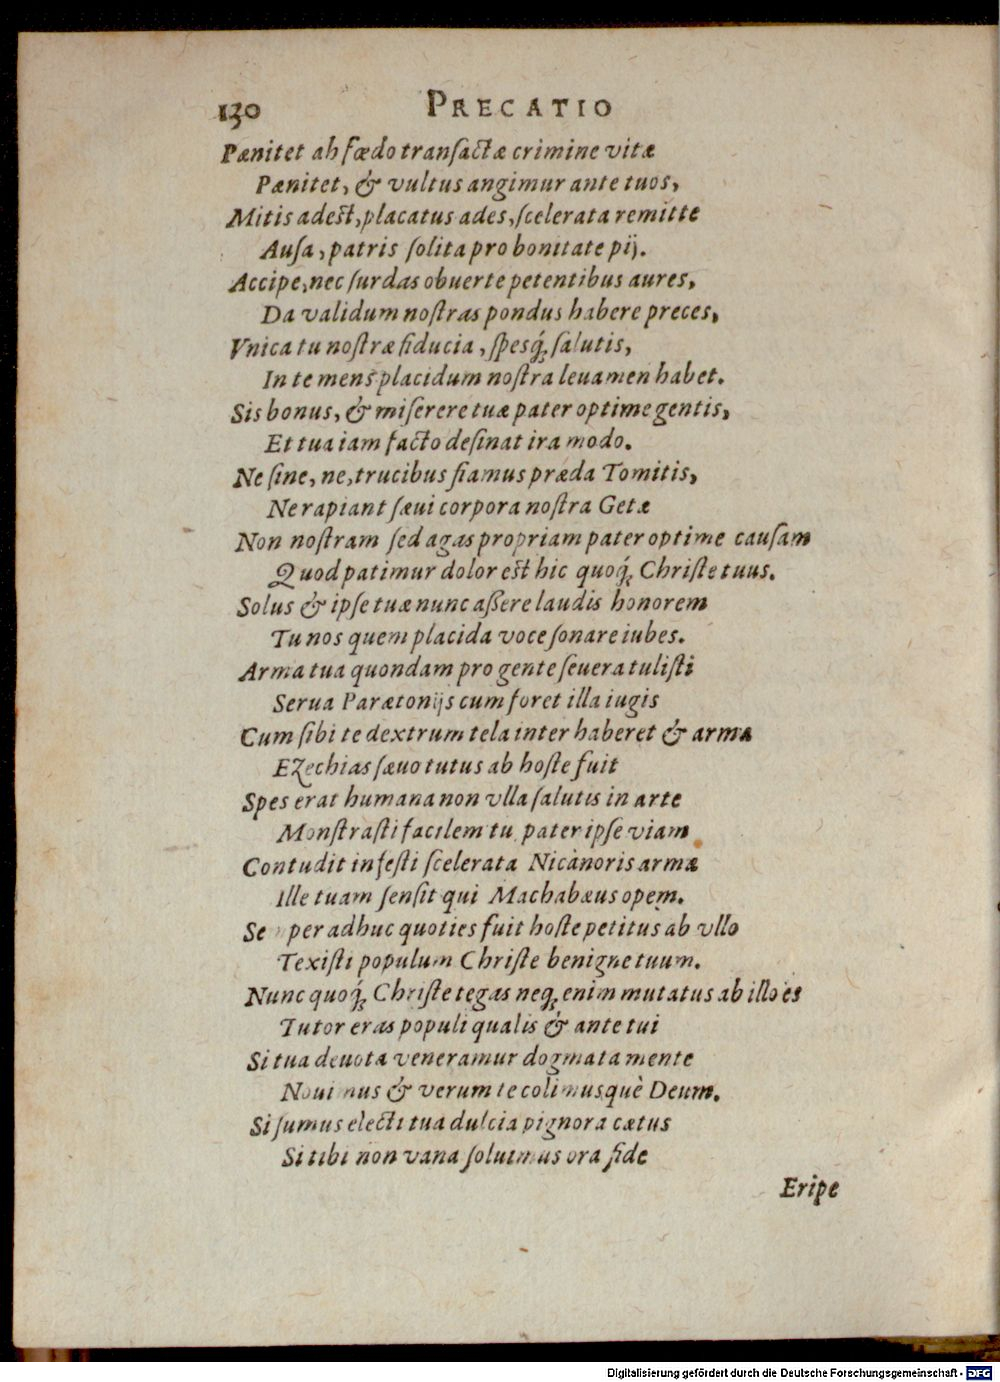 130 PRECATIO
Pænitet ah fœdo transactæ crimine vitæ
Pænitet, & vultus angimur ante tuos,
Mitis adest, placatus ades, scelerata remitte
Ausa, patris solita pro bonitate pij.
Accipe, nec surdas obuerte petentibus aures,
Da validum nostras pondus habere preces,
Vnica tu nostræ fiducia, spesq́; salutis,
In te mens placidum nostra leuamen habet.
Sis bonus, & miserere tuæ pater optime gentis,
Et tua iam facto desinat ira modo.
Ne sine, ne, trucibus fiamus præda Tomitis,
Ne rapiant sæui corpora nostra Getæ
Non nostram sed agas propriam pater optime causam
Quod patimur dolor est hic quoq́; Christe tuus.
Solus & ipse tuæ nunc aßere laudis honorem
Tu nos quem placida voce sonare iubes.
Arma tua quondam pro gente seuera tulisti
Serua Parætonijs cum foret illa iugis
Cum sibi te dextrum tela inter haberet & arma
Ezechias sæuo tutus ab hoste fuit
Spes erat humana non vlla salutis in arte
Monstrasti facilem tu pater ipse viam
Contudit infesti scelerata Nicànoris arma
Ille tuam sensit qui Machabæus opem.
Semper adhuc quoties fuit hoste petitus ab vllo
Texisti populum Christe benigne tuum.
Nunc quoq́; Christe tegas neq; enim mutatus ab illo es
Tutor eras populi qualis & ante tui
Si tua deuota veneramur dogmata mente
Nouimus & verum te colimusquè Deum.
Si sumus electi tua dulcia pignora cætus
Si tibi non vana soluimus ora fide
Eripe
Digitalisierung gefördert durch die Deutsche Forschungsgemeinschaft - DFG